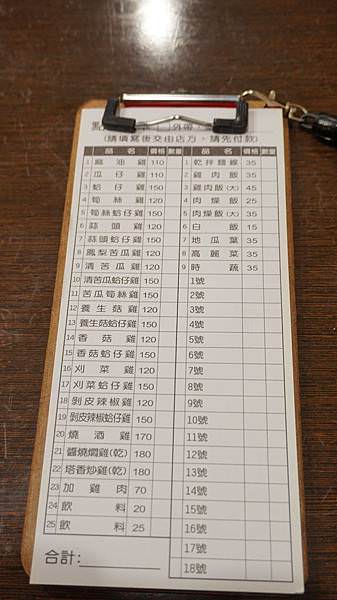 點 外帶
(請填寫後交由店方，請先付款)
品名 價格 數量 品名 價格 數量
1 麻油雞 110 1 乾拌麵線 35
2 瓜仔雞 110 2 雞肉飯 35
3 蛤仔雞 150 3 雞肉飯(大) 45
4 筍絲雞 120 4 肉燥飯 25
5 筍絲蛤仔雞 150 5 肉燥飯(大) 35
6 蒜頭雞 120 6 白飯 15
7 蒜頭蛤仔雞 150 7 地瓜葉 35
8 鳳梨苦瓜雞 120 8 高麗菜 35
9 清苦瓜雞 120 9 時蔬 35
10 清苦瓜蛤仔雞 150 1號
11 苦瓜筍絲雞 120 2號
12 養生菇雞 120 3號
13 養生菇蛤仔雞 150 4號
14 香菇雞 120 5號
15 香菇蛤仔雞 150 6號
16 刈菜雞 120 7號
17 刈菜蛤仔雞 150 8號
18 剝皮辣椒雞 120 9號
19 剝皮辣椒蛤仔雞 150 10號
20 燒酒雞 170 11號
21 醬燒燜雞(乾) 180 12號
22 塔香炒雞(乾) 180 13號
23 加雞肉 70 14號
24 飲料 20 15號
25 飲料 25 16號
17號
合計: 18號